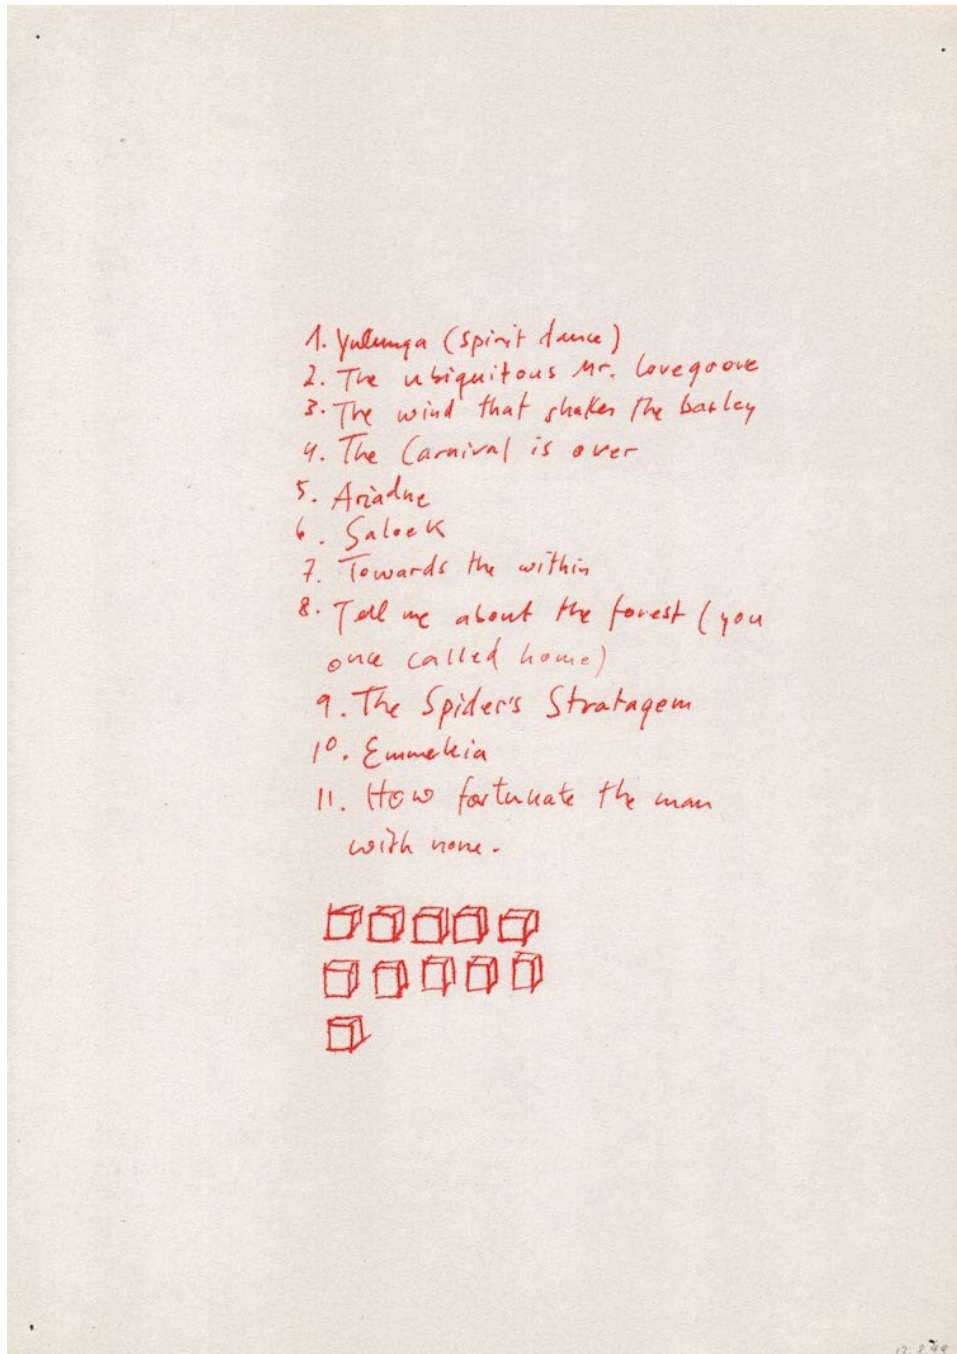 1. Yulunga (spirit dance)
2. The ubiquitous Mr. Lovegrove
3. The wind that shakes the barley
4. The Carnival is over
5. Ariadne
6. Saleek
7. Towards the within
8. Tell me about the forest (you
once called home)
9. The Spider's Stratagem
10. Emmeleia
11. How fortunate the man
with none.